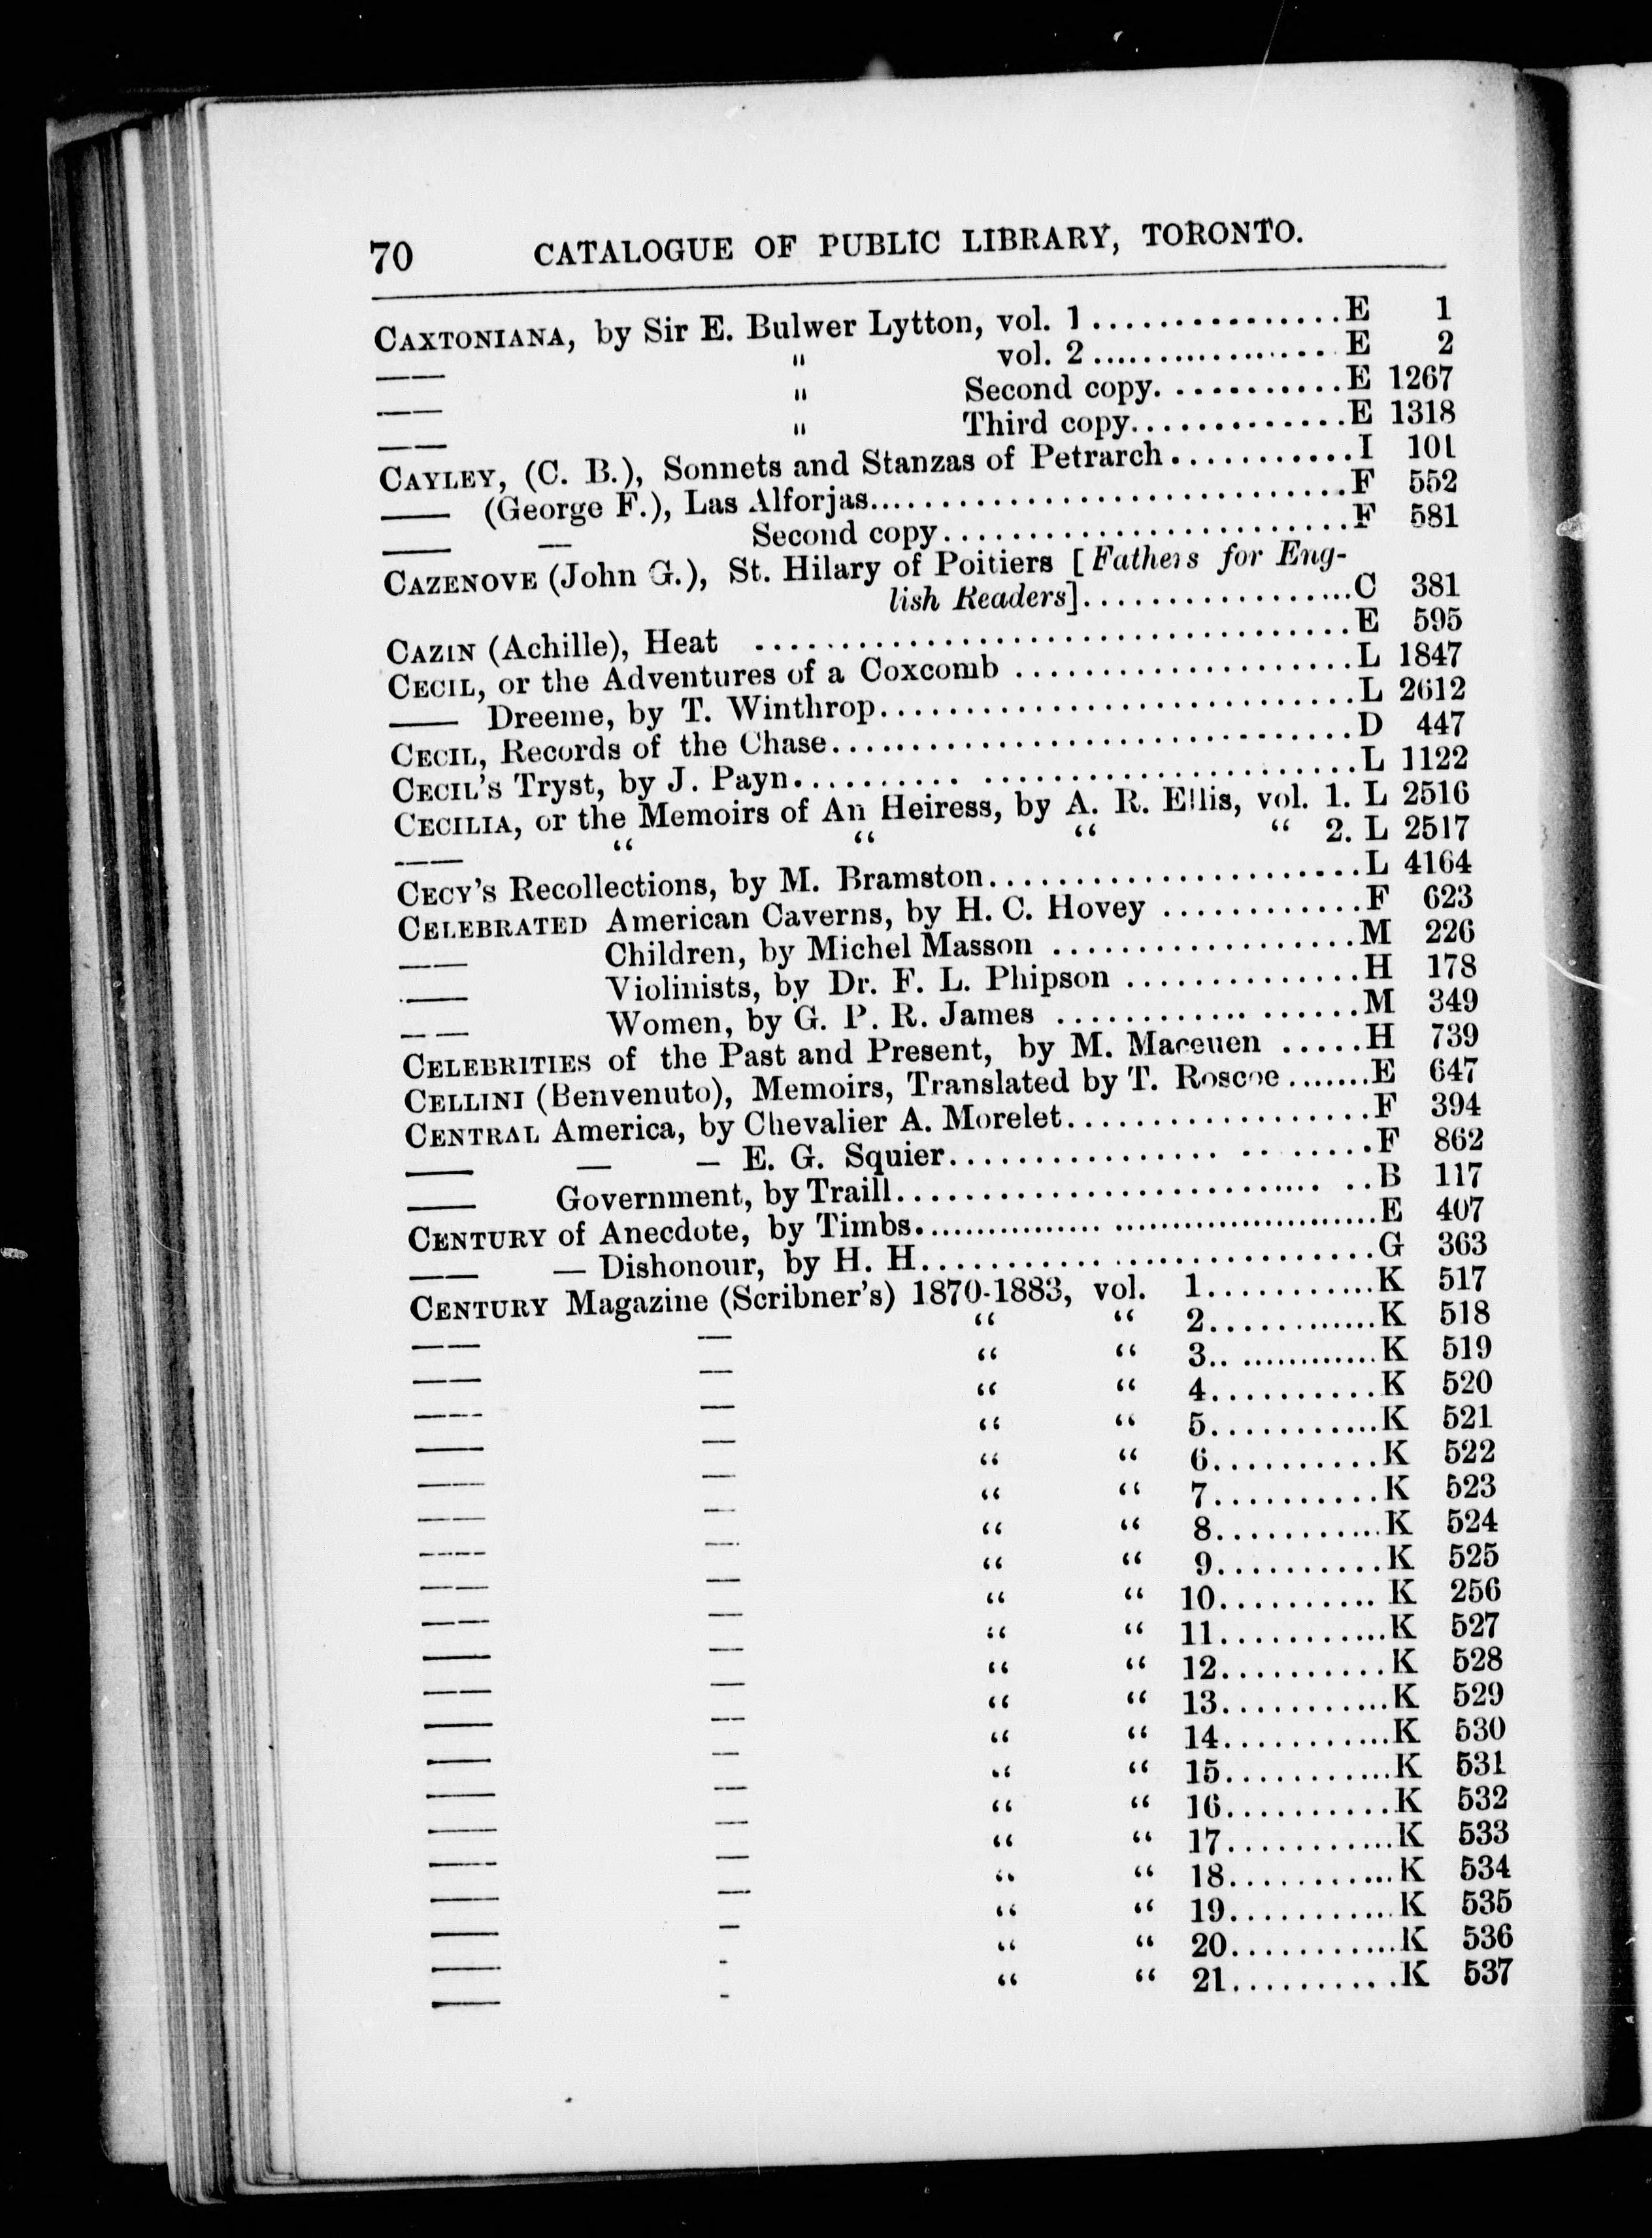 70 CATALOGUE OF PUBLIC LIBRARY, TORONTO.
CAXTONIANA, by Sir E. Bulwer Lytton, vol. 1 ............... E 1
—— " vol. 2 ................. E 2
—— " Second copy. .......... E 1267
—— " Third copy ............. E 1318
CAYLEY, (C. B.), Sonnets and Stanzas of Petrarch ........... I 101
—— (George F.), Las Alforjas ............................. F 552
—— — Second copy ......................... F 581
CAZENOVE (John G.), St. Hilary of Poitiers [Fathers for Eng-
lish Readers] .................. C 381
CAZIN (Achille), Heat .................................... E 595
CECIL, or the Adventures of a Coxcomb .................... L 1847
—— Dreeme, by T. Winthrop ............................ L 2612
CECIL, Records of the Chase ............................... D 447
CECIL'S Tryst, by J. Payn ................................ L 1122
CECILIA, or the Memoirs of An Heiress, by A. R. Ellis, vol. 1. L 2516
—— “ “ “ “ 2. L 2517
CECY'S Recollections, by M. Bramston ...................... L 4164
CELEBRATED American Caverns, by H. C. Hovey ............ F 623
—— Children, by Michel Masson .................. M 226
—— Violinists, by Dr. F. L. Phipson .............. H 178
—— Women, by G. P. R. James .................. M 349
CELEBRITIES of the Past and Present, by M. Maceuen ..... H 739
CELLINI (Benvenuto), Memoirs, Translated by T. Roscoe ....... E 647
CENTRAL America, by Chevalier A. Morelet .................. F 394
—— — – E. G. Squier ......................... F 862
—— Government, by Traill ............................ B 117
CENTURY of Anecdote, by Timbs ............................ E 407
—— — Dishonour, by H. H ........................... G 363
CENTURY Magazine (Scribner's) 1870-1883, vol. 1 .......... K 517
—— — “ “ 2 ............ K 518
—— — “ “ 3 ............ K 519
—— — “ “ 4 .......... K 520
—— — “ “ 5 ........... K 521
—— — “ “ 6 .......... K 522
—— — “ “ 7 .......... K 523
—— — “ “ 8 ........... K 524
—— — “ “ 9 .......... K 525
—— — “ “ 10 .......... K 256
—— — “ “ 11 ........... K 527
—— — “ “ 12 .......... K 528
—— — “ “ 13 ........... K 529
—— — “ “ 14 ........... K 530
—— — “ “ 15 ........... K 531
—— — “ “ 16 .......... K 532
—— — “ “ 17 ........... K 533
—— — “ “ 18 ........... K 534
—— — “ “ 19 ........... K 535
—— – “ “ 20 ........... K 536
—— - “ “ 21 .......... K 537